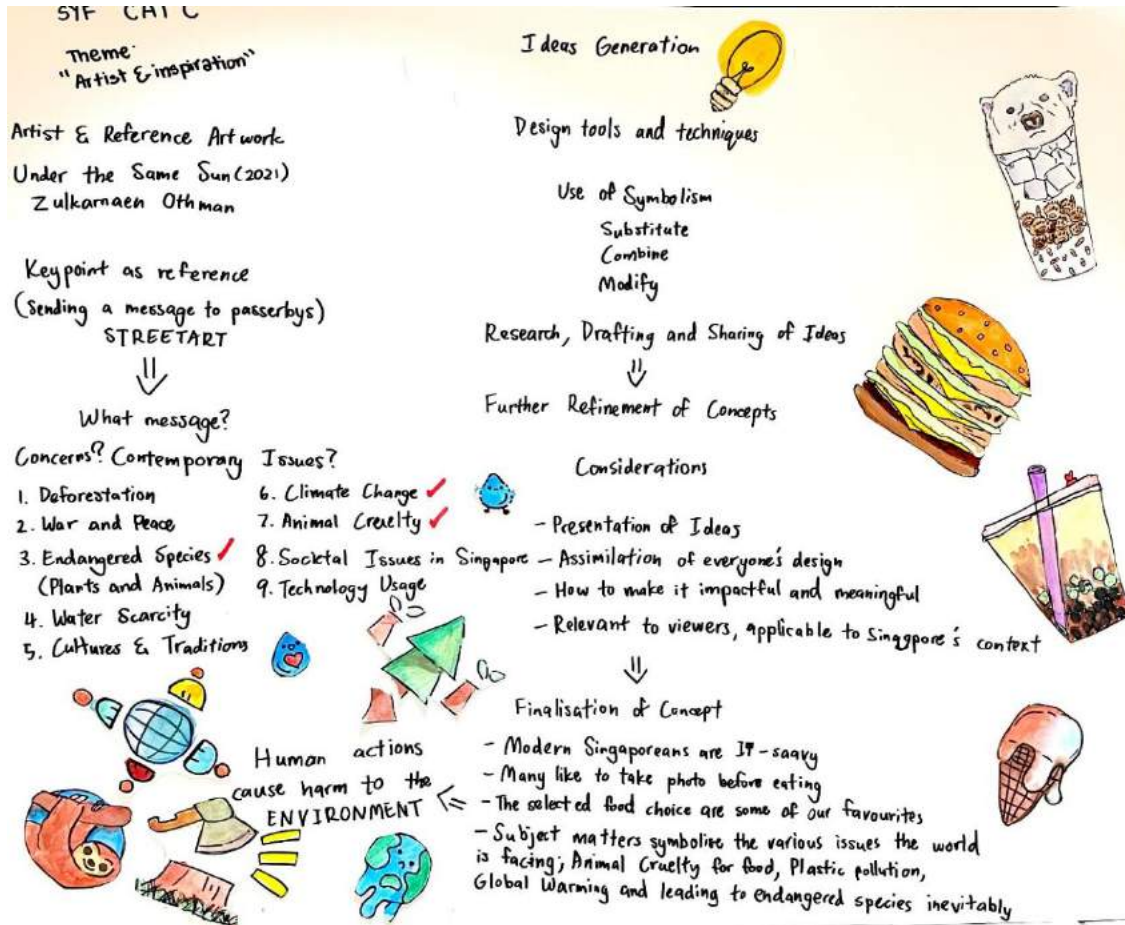 SYF CAT C
Theme:
"Artist & inspiration"
Artist & Reference Artwork
Under the Same Sun (2021)
Zulkarnaen Othman
Keypoint as reference
(Sending a message to passerbys)
STREETART
What message?
Concerns? Contemporary Issues?
1. Deforestation
2. War and Peace
3. Endangered Species
(Plants and Animals)
4. Water Scarcity
5. Cultures & Traditions
6. Climate Change
7. Animal Cruelty
8. Societal Issues in Singapore
9. Technology Usage
Human actions
cause harm to the
ENVIRONMENT
Ideas Generation
Design tools and techniques
Use of Symbolism
Substitute
Combine
Modify
Research, Drafting and Sharing of Ideas
Further Refinement of Concepts
Considerations
- Presentation of Ideas
- Assimilation of everyone's design
- How to make it impactful and meaningful
- Relevant to viewers, applicable to Singapore's context
Finalisation of Concept
- Modern Singaporeans are IT-saavy
- Many like to take photo before eating
- The selected food choice are some of our favourites
- Subject matters symbolise the various issues the world
is facing; Animal Cruelty for food, Plastic pollution,
Global Warming and leading to endangered species inevitably